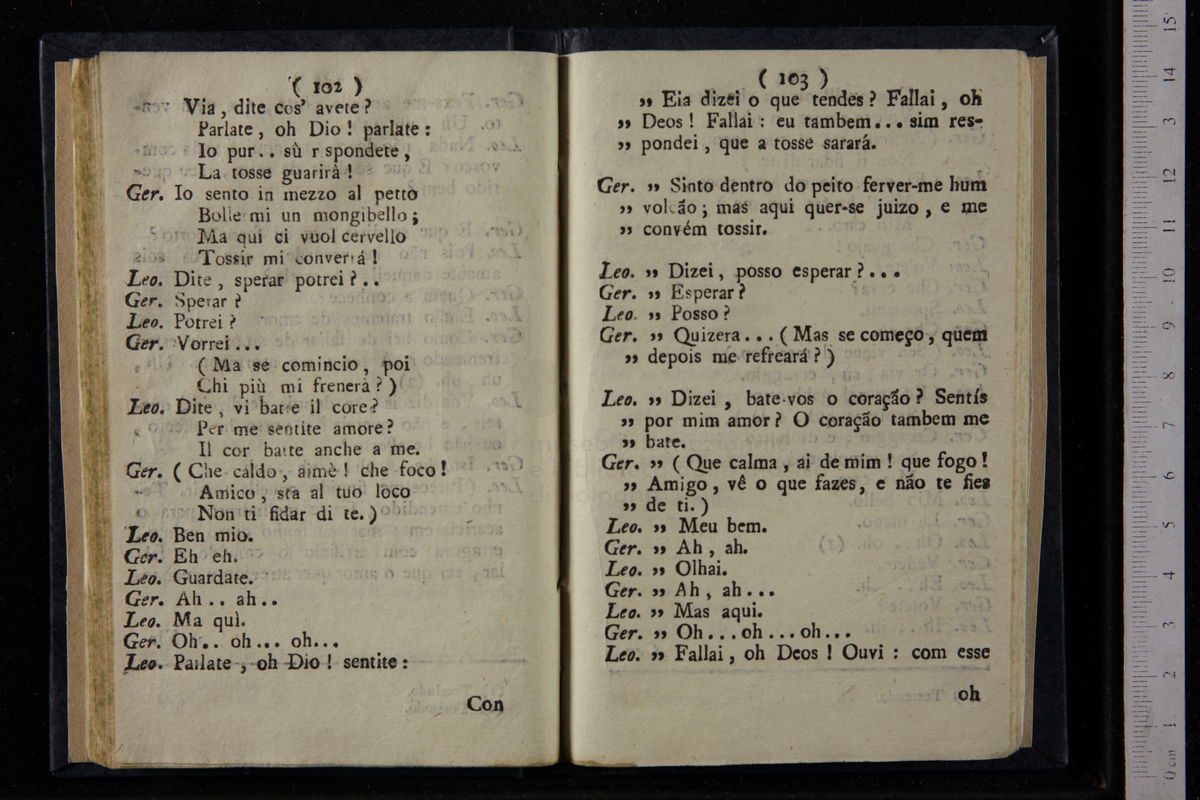 ( 102 )
Via , dite cos' avete ?
Parlate , oh Dio ! parlate :
Io pur . . sù r spondete ,
La tosse guarirà !
Ger. Io sento in mezzo al petto
Bolle mi un mongibello ;
Ma qui ci vuol cervello
Tossir mi converrá !
Leo. Dite , sperar potrei ? . .
Ger. Sperar ?
Leo. Potrei ?
Ger. Vorrei . . .
( Ma se comincio , poi
Chi più mi frenerà ? )
Leo. Dite , vi batte il core ?
Per me sentite amore ?
Il cor batte anche a me.
Ger. ( Che caldo , aimè ! che foco !
Amico , sta al tuo loco
Non ti fidar di te. )
Leo. Ben mio.
Ger. Eh eh.
Leo. Guardate.
Ger. Ah . . ah . .
Leo. Ma quì.
Ger. Oh . . oh . . . oh . . .
Leo. Parlate , oh Dio ! sentite :
Con
( 103 )
„ Eia dizei o que tendes ? Fallai , oh
„ Deos ! Fallai : eu tambem . . . sim res-
„ pondei , que a tosse sarará.
Ger. „ Sinto dentro do peito ferver-me hum
„ volcão ; mas aqui quer-se juizo , e me
„ convém tossir.
Leo. „ Dizei , posso esperar ? . . .
Ger. „ Esperar ?
Leo. „ Posso ?
Ger. „ Quizera . . . ( Mas se começo , quem
„ depois me refreará ? )
Leo. „ Dizei , bate-vos o coração ? Sentís
„ por mim amor ? O coração tambem me
„ bate.
Ger. „ ( Que calma , ai de mim ! que fogo !
„ Amigo , vê o que fazes , e não te fies
„ de ti. )
Leo. „ Meu bem.
Ger. „ Ah , ah.
Leo. „ Olhai.
Ger. „ Ah , ah . . .
Leo. „ Mas aqui.
Ger. „ Oh . . . oh . . . oh . . .
Leo. „ Fallai , oh Deos ! Ouvi : com esse
oh